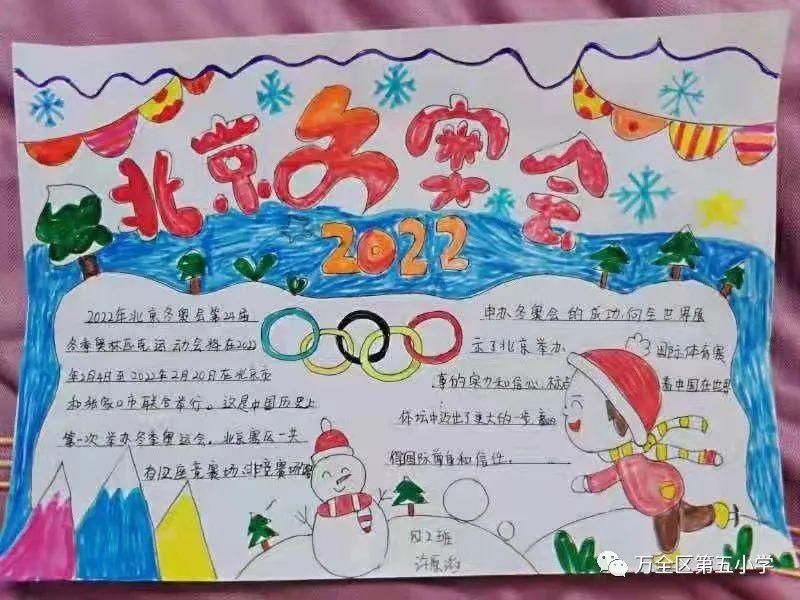 北京冬奥会
2022
2022年北京冬奥会第24届
冬季奥林匹克运动会将在2022
年2月4日至2022年2月20日在北京市
和张家口市联合举行。这是中国历史上
第一次举办冬季奥运会。北京赛区一共
申办冬奥会的成功,向全世界展
示了北京举办国际体育赛
事的实力和信心,标志着中国在世界
体坛中迈出了更大的一步,赢
得国际尊重和信任。
四2班
万全区第五小学